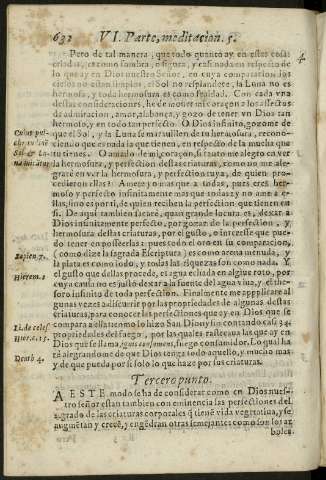 632 VI. Parte, meditacion. 5.
Pero de tal manera, que todo quanto ay en estas cosas
criadas, es como sombra, o figura, y casi nada respecto de
lo que ay en Dios nuestro Señor, en cuya comparacion los
cielos no estan limpios, el Sol no resplandece, la Luna no es
hermosa, y toda hermosura es como fealdad. Con cada vna
destas consideraciones, he de mouer mi coraçon a los affectos
de admiracion, amor, alabança, y gozo de tener vn Dios tan
hermoso, y en todo tan perfecto. O Dios infinito, gozome de
que el Sol, y la Luna se marauillen de tu hermosura, recono-
ciendo que es nada la que tienen, en respecto de la mucha que
tienes. O amado de mi coraçon, si tanto me alegro en ver
la hermosura, y perfection destas criaturas, como no me ale-
graré en ver la hermosura, y perfection tuya, de quien pro-
cedieron ellas? Amete yo mas que a todas, pues eres her-
moso y perfecto infinitamente mas que todas: y no ame a e-
llas, sino es por ti, de quien reciben la perfection que tienen en
si. De aqui tambien sacaré, quan grande locura es, dexar a
Dios infinitamente perfecto, por gozar de la perfection, y
hermosura destas criaturas, por el gusto, o interesse que pue-
do tener en posseerlas: pues todo el oro en su comparacion,
(como dize la sagrada Escriptura) es como arena menuda, y
la plata es como lodo, y todas las riquezas son como nada. Y
el gusto que dellas procede, es agua echada en algiue roto, por
cuya causa no es justo dexar a la fuente del agua viua, y el the-
soro infinito de toda perfection. Finalmente me applicare al
gunas vezes a discurrir por las propiedades de algunas destas
criaturas, para conocer las perfectiones que ay en Dios que se
compara a ellas: como lo hizo San Dionysio contando casi 30.
propiedades del fuego, por las quales rasteaua las que ay en
Dios que se llama, ignis consumens, fuego consumidor. Lo qual ha
ré alegrandome de que Dios tenga todo aquello, y mucho mas
y de que pueda por si solo lo que haze por sus criaturas.
Tercero punto.
A ESTE modo se ha de considerar como en Dios nues-
tro señor estan tambien con eminencia las perfectiones del
grado de las criaturas corporales q̃ tienẽ vida vegetatiua, y se
augmẽtan y crecẽ, y engẽdran otras semejantes como son los ar
boles.
4
Sapien. 7.
Hierem. 2
Deut. 4.